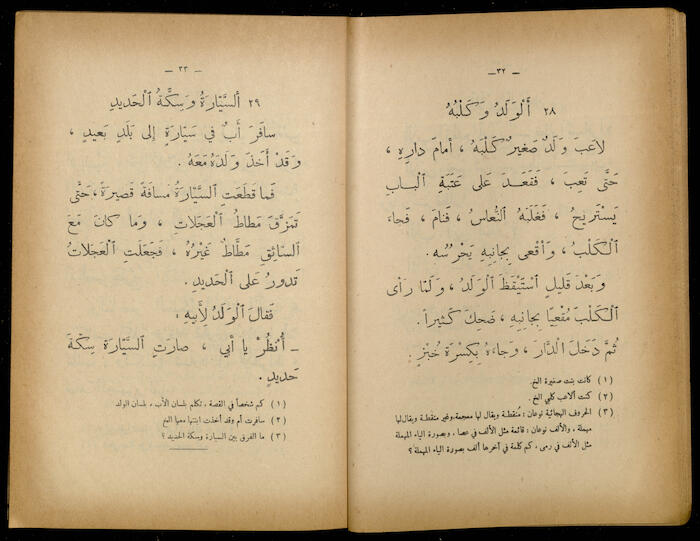 — ٣٢ —
٢٨ أَلْوَلَدُ وَكَلْبُهُ
لاعَبَ وَلَدٌ صَغيرٌ كَلْبَهُ ، أَمامَ دارِهِ ،
حَتَّى تَعِبَ ، فَقَعَدَ عَلى عَتَبَةِ ٱلْبابِ
يَسْتَريحُ ، فَغَلَبَهُ ٱلنُّعاسُ ، فَنامَ ، فَجاءَ
ٱلْكَلْبُ ، وَأَقْعى بِجانِبِهِ يَحْرُسُه .
وَبَعْدَ قَليلٍ ٱسْتَيْقَظَ ٱلْوَلَدُ ، وَلَمّا رَأى
ٱلْكَلْبَ مُقْعِيًا بِجانِبِهِ ، ضَحِكَ كَثيراً .
ثُمَّ دَخَلَ ٱلدّارَ ، وَجاءَهُ بِكِسْرَةِ خُبْزٍ .
(١) كانت بنت صغيرة الخ .
(٢) كنت ألاعب كلبي الخ .
(٣) الحروف الهجائية نوعان : منقطة ويقال لها معجمة، وغير منقطة ويقال لها
مهملة . والألف نوعان : قائمة مثل الألف في عصا ، وبصورة الياء المهملة
مثل الألف في رمى . كم كلمة في آخرها ألف بصورة الياء المهملة ؟
— ٣٣ —
٢٩ أَلسَّيّارَةُ وَسِكَّةُ ٱلْحَديدِ
سافَرَ أَبٌ في سَيّارَةٍ إِلى بَلَدٍ بَعيدٍ ،
وَقَدْ أَخَذَ وَلَدَهُ مَعَهُ .
فَما قَطَعَتِ ٱلسَّيّارَةُ مَسافَةً قَصيرَةً ، حَتَّى
تَمَزَّقَ مَطّاطُ ٱلْعَجَلاتِ ، وَما كانَ مَعَ
ٱلسّائِقِ مَطّاطٌ غَيْرُهُ ، فَجَعَلَتِ ٱلْعَجَلاتُ
تَدورُ عَلى ٱلْحَديدِ .
فَقالَ ٱلْوَلَدُ لِأَبيهِ :
— أُنْظُرْ يا أَبي ، صارَتِ ٱلسَّيّارَةُ سِكَّةَ
حَديدٍ .
(١) كم شخصاً في القصة ، تكلم بلسان الأب ، بلسان الولد
(٢) سافرت أم وقد أخذت ابنتها معها الخ
(٣) ما الفرق بين السيارة وسكة الحديد ؟